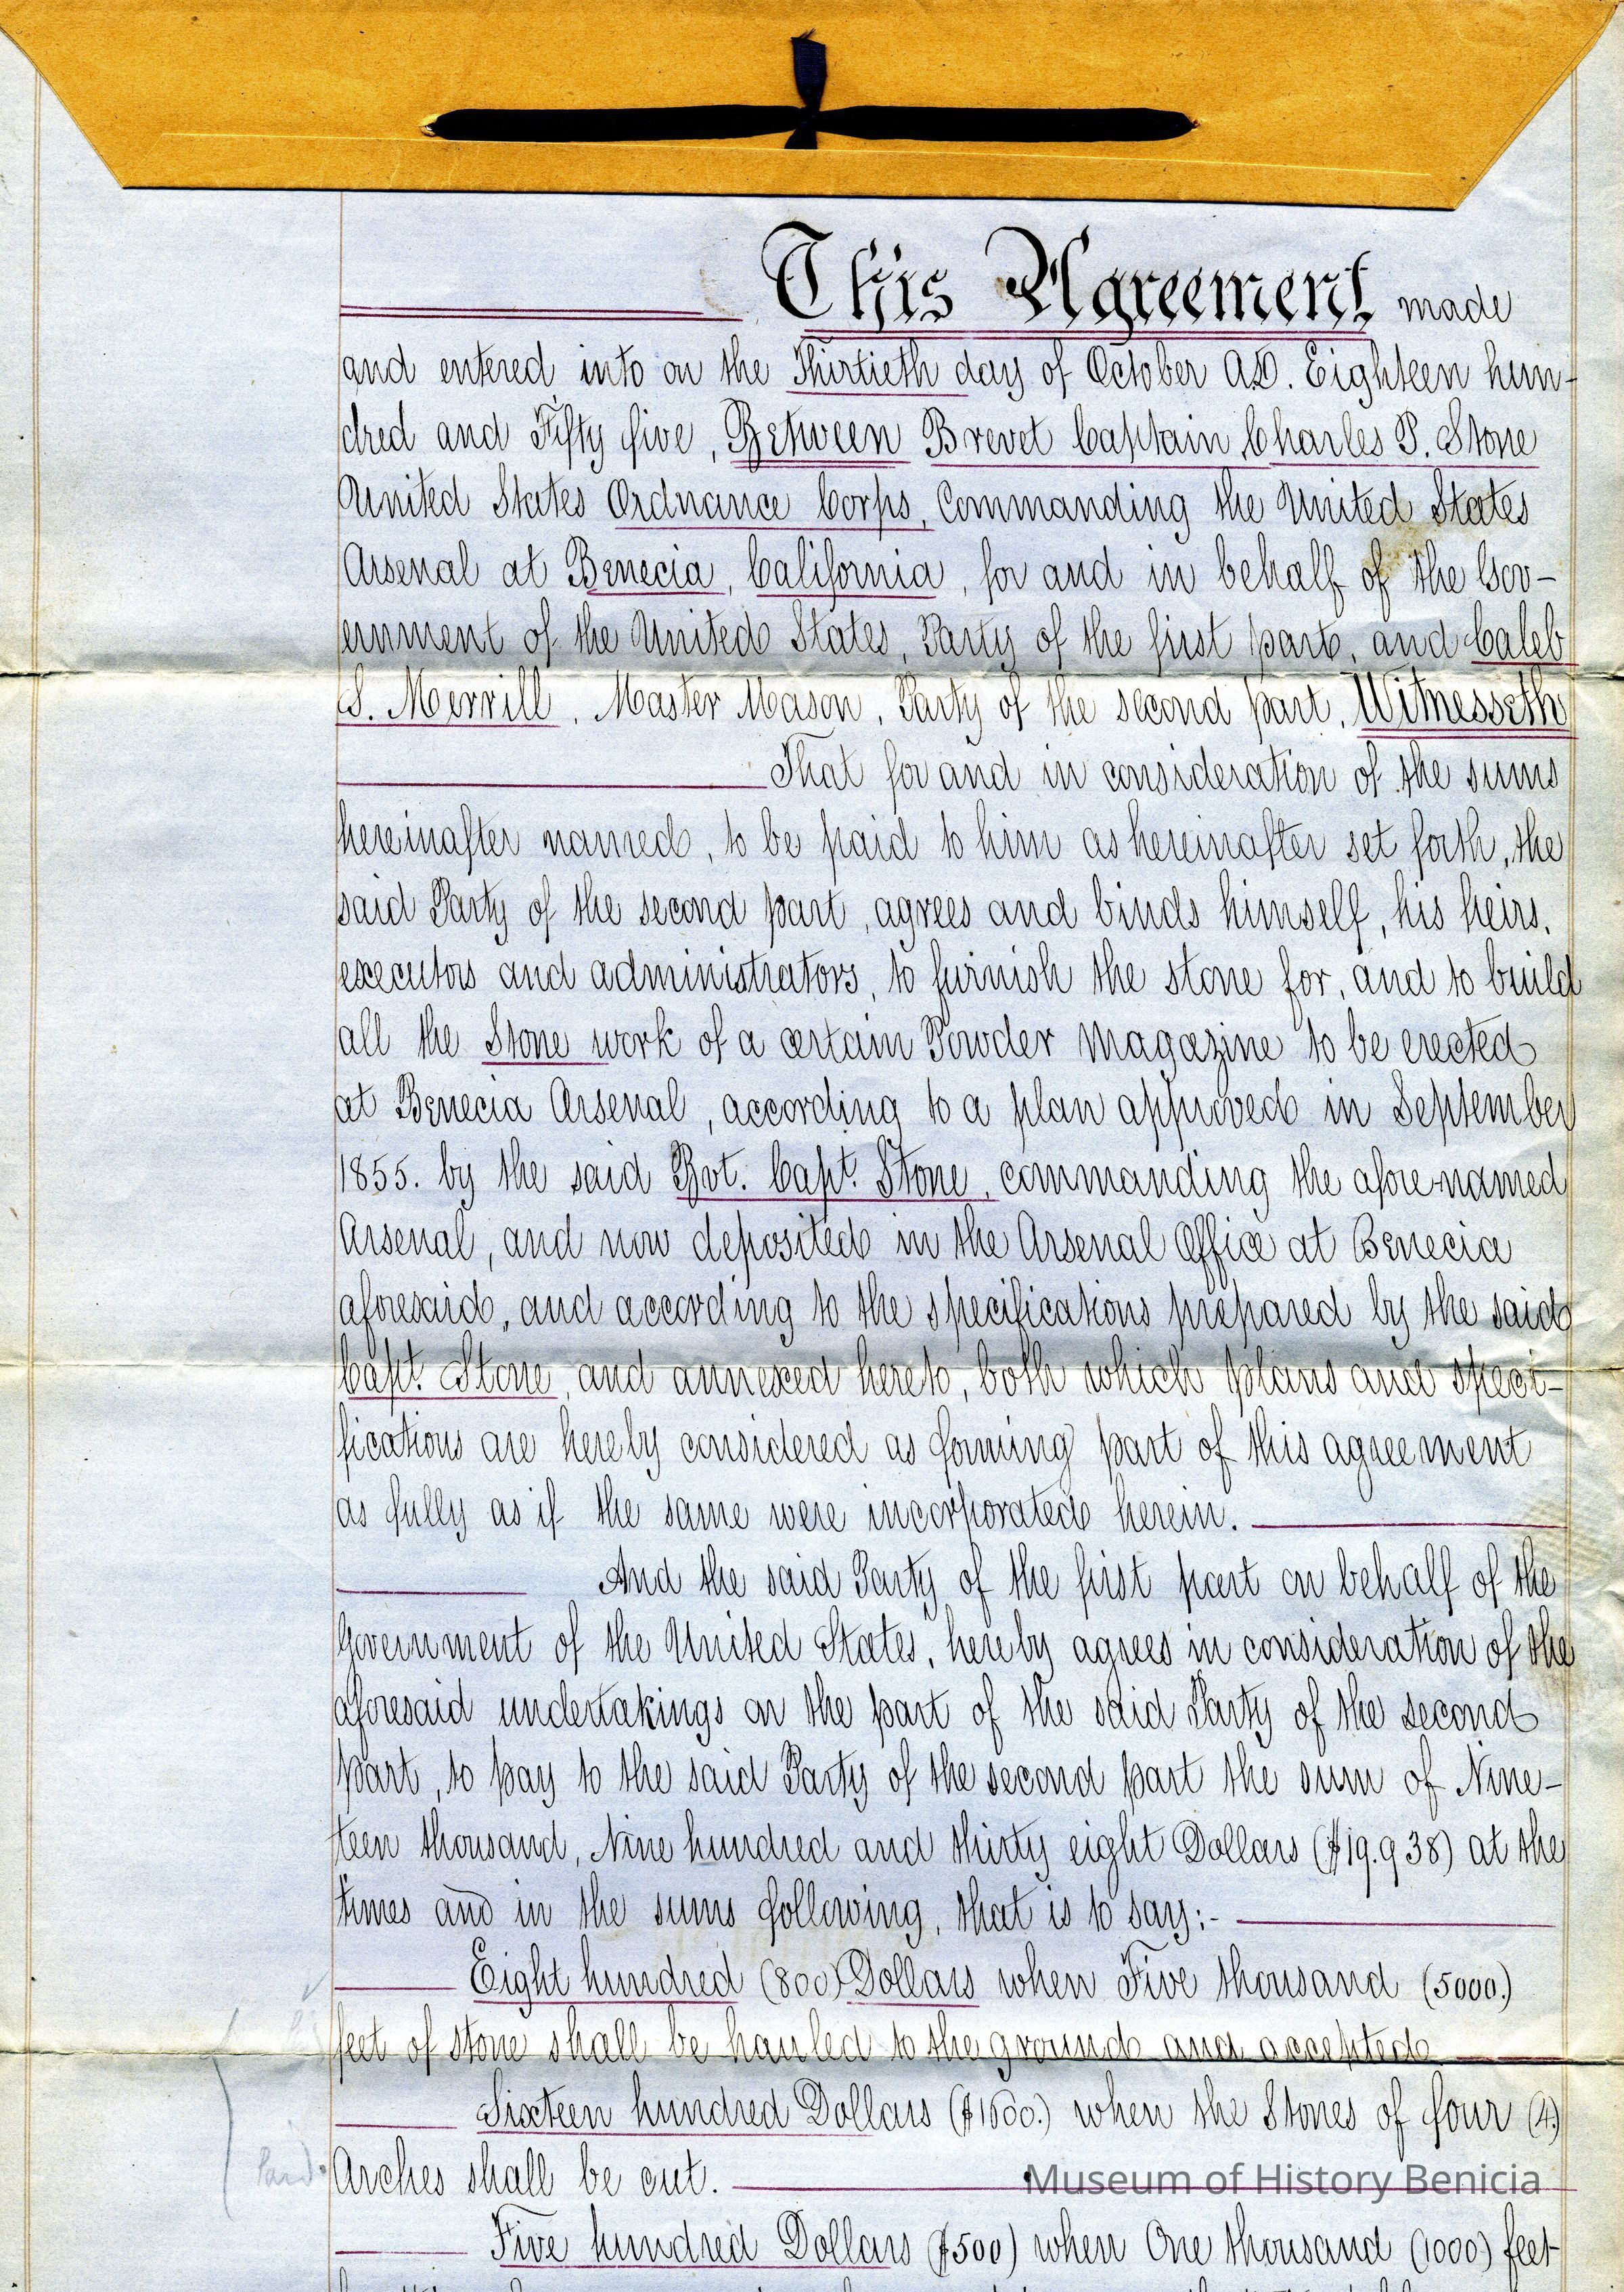 This Agreement made
and entered into on the Thirtieth day of October A.D. Eighteen hun-
dred and Fifty five, Between Brevet Captain Charles P. Stone
United States Ordnance Corps, Commanding the United States
Arsenal at Benecia, California, for and in behalf of the Gov-
ernment of the United States, Party of the first part, and Caleb
S. Merrill, Master Mason, Party of the second part, Witnesseth
That for and in consideration of the sums
hereinafter named, to be paid to him as hereinafter set forth, the
said Party of the second part, agrees and binds himself, his heirs,
executors and administrators, to furnish the stone for, and to build
all the Stone work of a certain Powder Magazine to be erected
at Benecia Arsenal, according to a plan approved in September
1855. by the said Bvt. Capt. Stone, commanding the afore-named
Arsenal, and now deposited in the Arsenal Office at Benecia
aforesaid, and according to the specifications prepared by the said
Capt. Stone, and annexed hereto, both which plans and speci-
fications are hereby considered as forming part of this agreement
as fully as if the same were incorporated herein.
And the said Party of the first part on behalf of the
Government of the United States, hereby agrees in consideration of the
aforesaid undertakings on the part of the said Party of the second
part, to pay to the said Party of the second part the sum of Nine-
teen thousand, Nine hundred and thirty eight Dollars ($19.938) at the
times and in the sums following, that is to say:-
Eight hundred (800) Dollars when Five thousand (5000.)
feet of stone shall be hauled to the ground and accepted
Sixteen hundred Dollars ($1600.) when the Stones of four (4)
Paid. Arches shall be cut.
Museum of History Benicia
Five hundred Dollars ($500) when One thousand (1000) feet